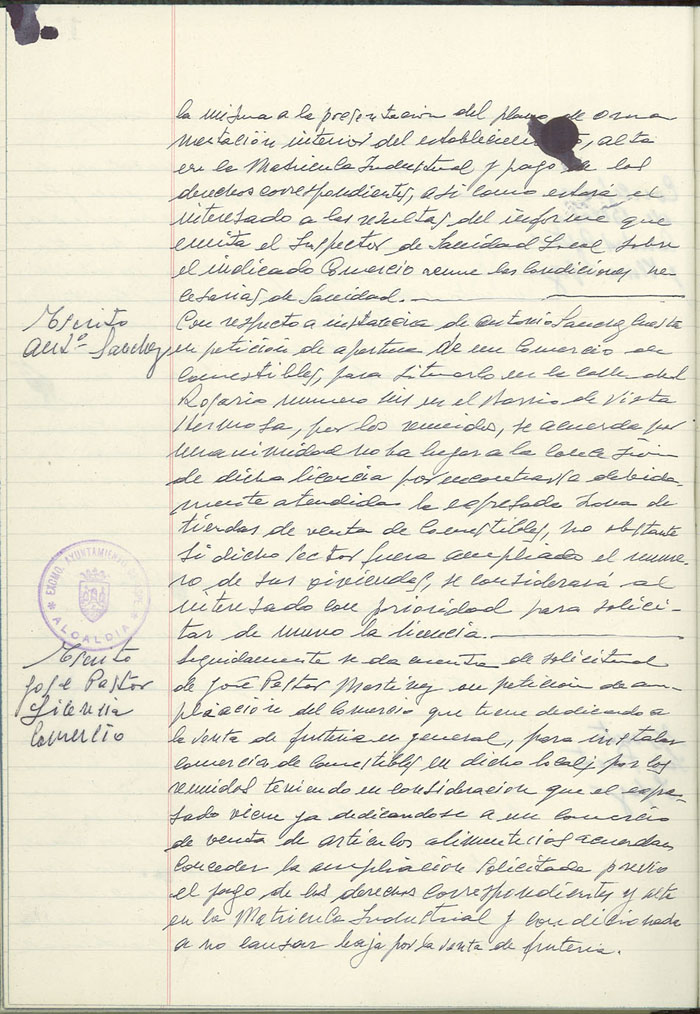 la misma a la presentacion del plano de orna
mentación interior del establecimiento, alta
en la Matricula Industrial y pago de los
derechos correspondientes, asi como estará el
interesado a las resultas del informe que
emita el Inspector de Sanidad Local sobre
el indicado Comercio reune las Condiciones ne-
cesarias de Sanidad.
Escrito
Antº Sanchez
Con respecto a instancia de Antonio Sanchez
en petición de apertura de un Comercio de
Comestibles, para situarlo en la calle del
Rosario numero en el Barrio de Vista
Hermosa, por los reunidos, se acuerda por
unanimidad no ha lugar a la concesión
de dicha licencia por encontrarse debida
mente atendida la expresada zona de
tiendas de venta de Comestibles, no obstante
si dicho sector fuera ampliado el nume-
ro de sus viviendas, se considerará al
interesado con prioridad para solici-
tar de nuevo la licencia.
EXCMO. AYUNTAMIENTO
ALCALDIA
Escrito
José Pastor
Licencia
Comercio
Seguidamente se da cuenta de solicitud
de José Pastor Martinez en petición de am-
pliacion del Comercio que tiene dedicado a
la venta de fruteria en general, para instalar
comercio de Comestibles en dicho local, por los
reunidos teniendo en consideracion que el expre-
sado viene ya dedicandose a un comercio
de venta de articulos alimenticios acuerdan
conceder la ampliación solicitada previo
el pago de los derechos correspondientes y alta
en la Matricula Industrial y condicionada
a no causar baja por la venta de fruteria.